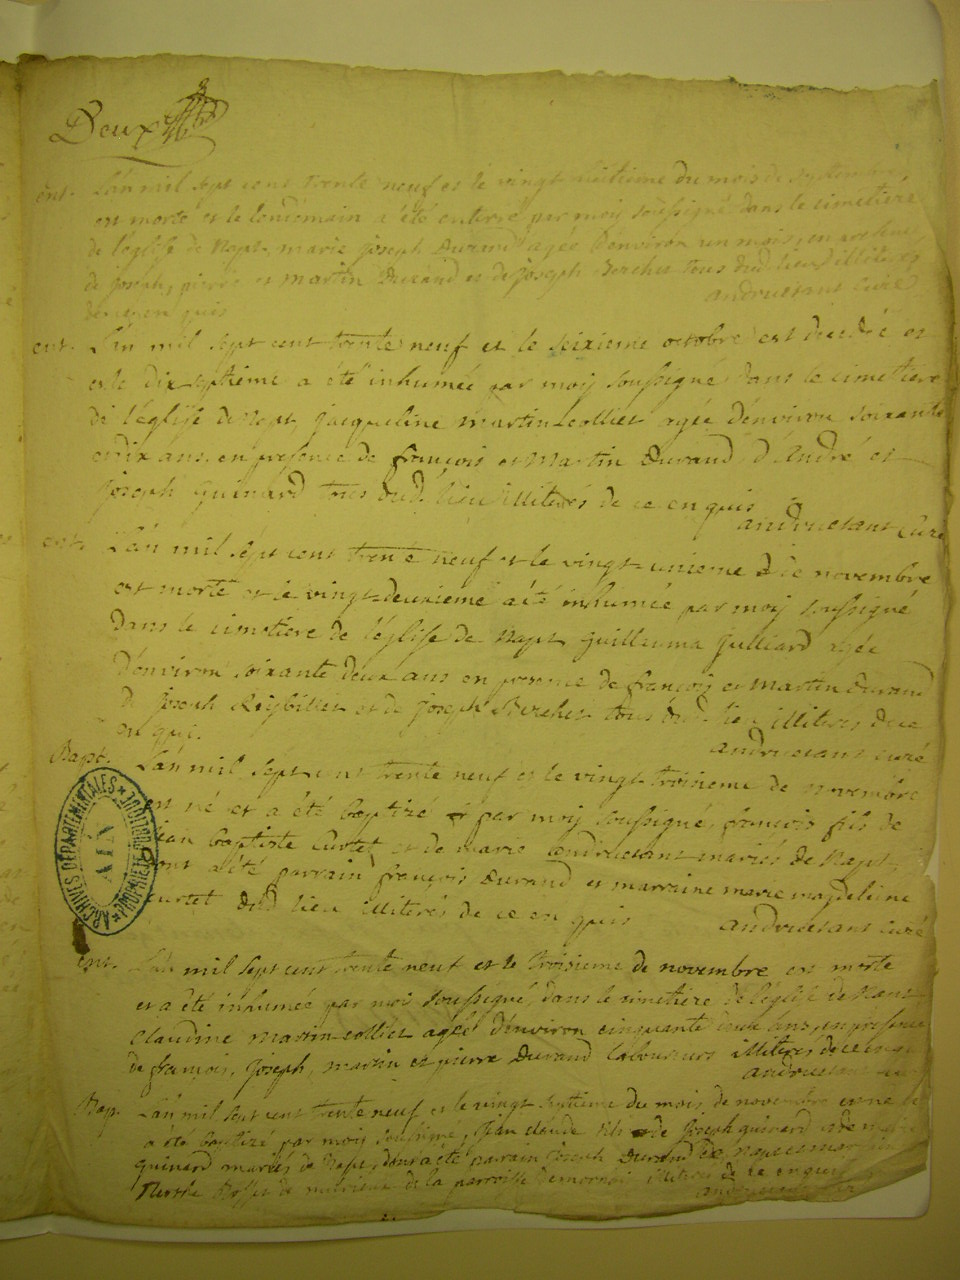 Deux
ent. L'an mil sept cent trente neuf et le vingt huitieme du mois de septembre
est morte et le lendemain a été enterré par moy soussigné dans le cimetiere
de l'église de Napt, marie joseph Durand agée d'environ un mois, en presence
de joseph, pierre et martin Durand et de joseph Berchet tous dud. lieu illiteres
de ce en quis andruetant curé
ent. L'an mil sept cent trente neuf et le seixieme octobre est decedée et
et le dix septieme a été inhumée par moy soussigné dans le cimetiere
de l'église de Napt jacqueline martin collier agée d'environ soixante
et dix ans en presence de françois et Martin Durand d'André et
joseph Guinard tous dud. lieu illiterés de ce en quis
andruetant Curé
ent. L'an mil sept cent trente neuf et le vingt-unieme de novembre
est morte et le vingt-deuxieme a été inhumée par moy soussigné
dans le cimetiere de l'église de Napt guillauma julliard agée
d'environ soixante deux ans en presence de françois et Martin Durand
de joseph et de joseph Berchet tous dud. lieu illiteres de ce
en quis. andruetant curé
Bapt. L'an mil sept cent trente neuf et le vingt troisieme de novembre
est né et a été baptizé par moy soussigné, françois fils de
jean baptiste Curtet et de marie andruetant mariés de Napt,
dont a été parrain françois Durand et marraine marie magdeleine
Curtet dud. lieu illiterés de ce en quis andruetant curé
ARCHIVES DÉPARTEMENTALES
AIN
PROPRIÉTÉ PUBLIQUE
ent. L'an mil sept cent trente neuf et le troisieme de novembre est morte
et a été inhumée par moi soussigné, dans le cimetiere de l'église de Napt
Claudine martin collier agée d'environ cinquante ans, en presence
de françois, joseph, martin et pierre Durand laboureurs illiterés de ce en quis
andruetant curé
Bap. L'an mil sept cent trente neuf et le vingt septieme du mois de novembre est né et
a été baptizé par moy soussigné, jean claude fils de joseph guinard et de
guinard mariés de Napt, dont a été parrain joseph Durand de Napt et
de la paroisse de illiteres de ce en quis
andruetant